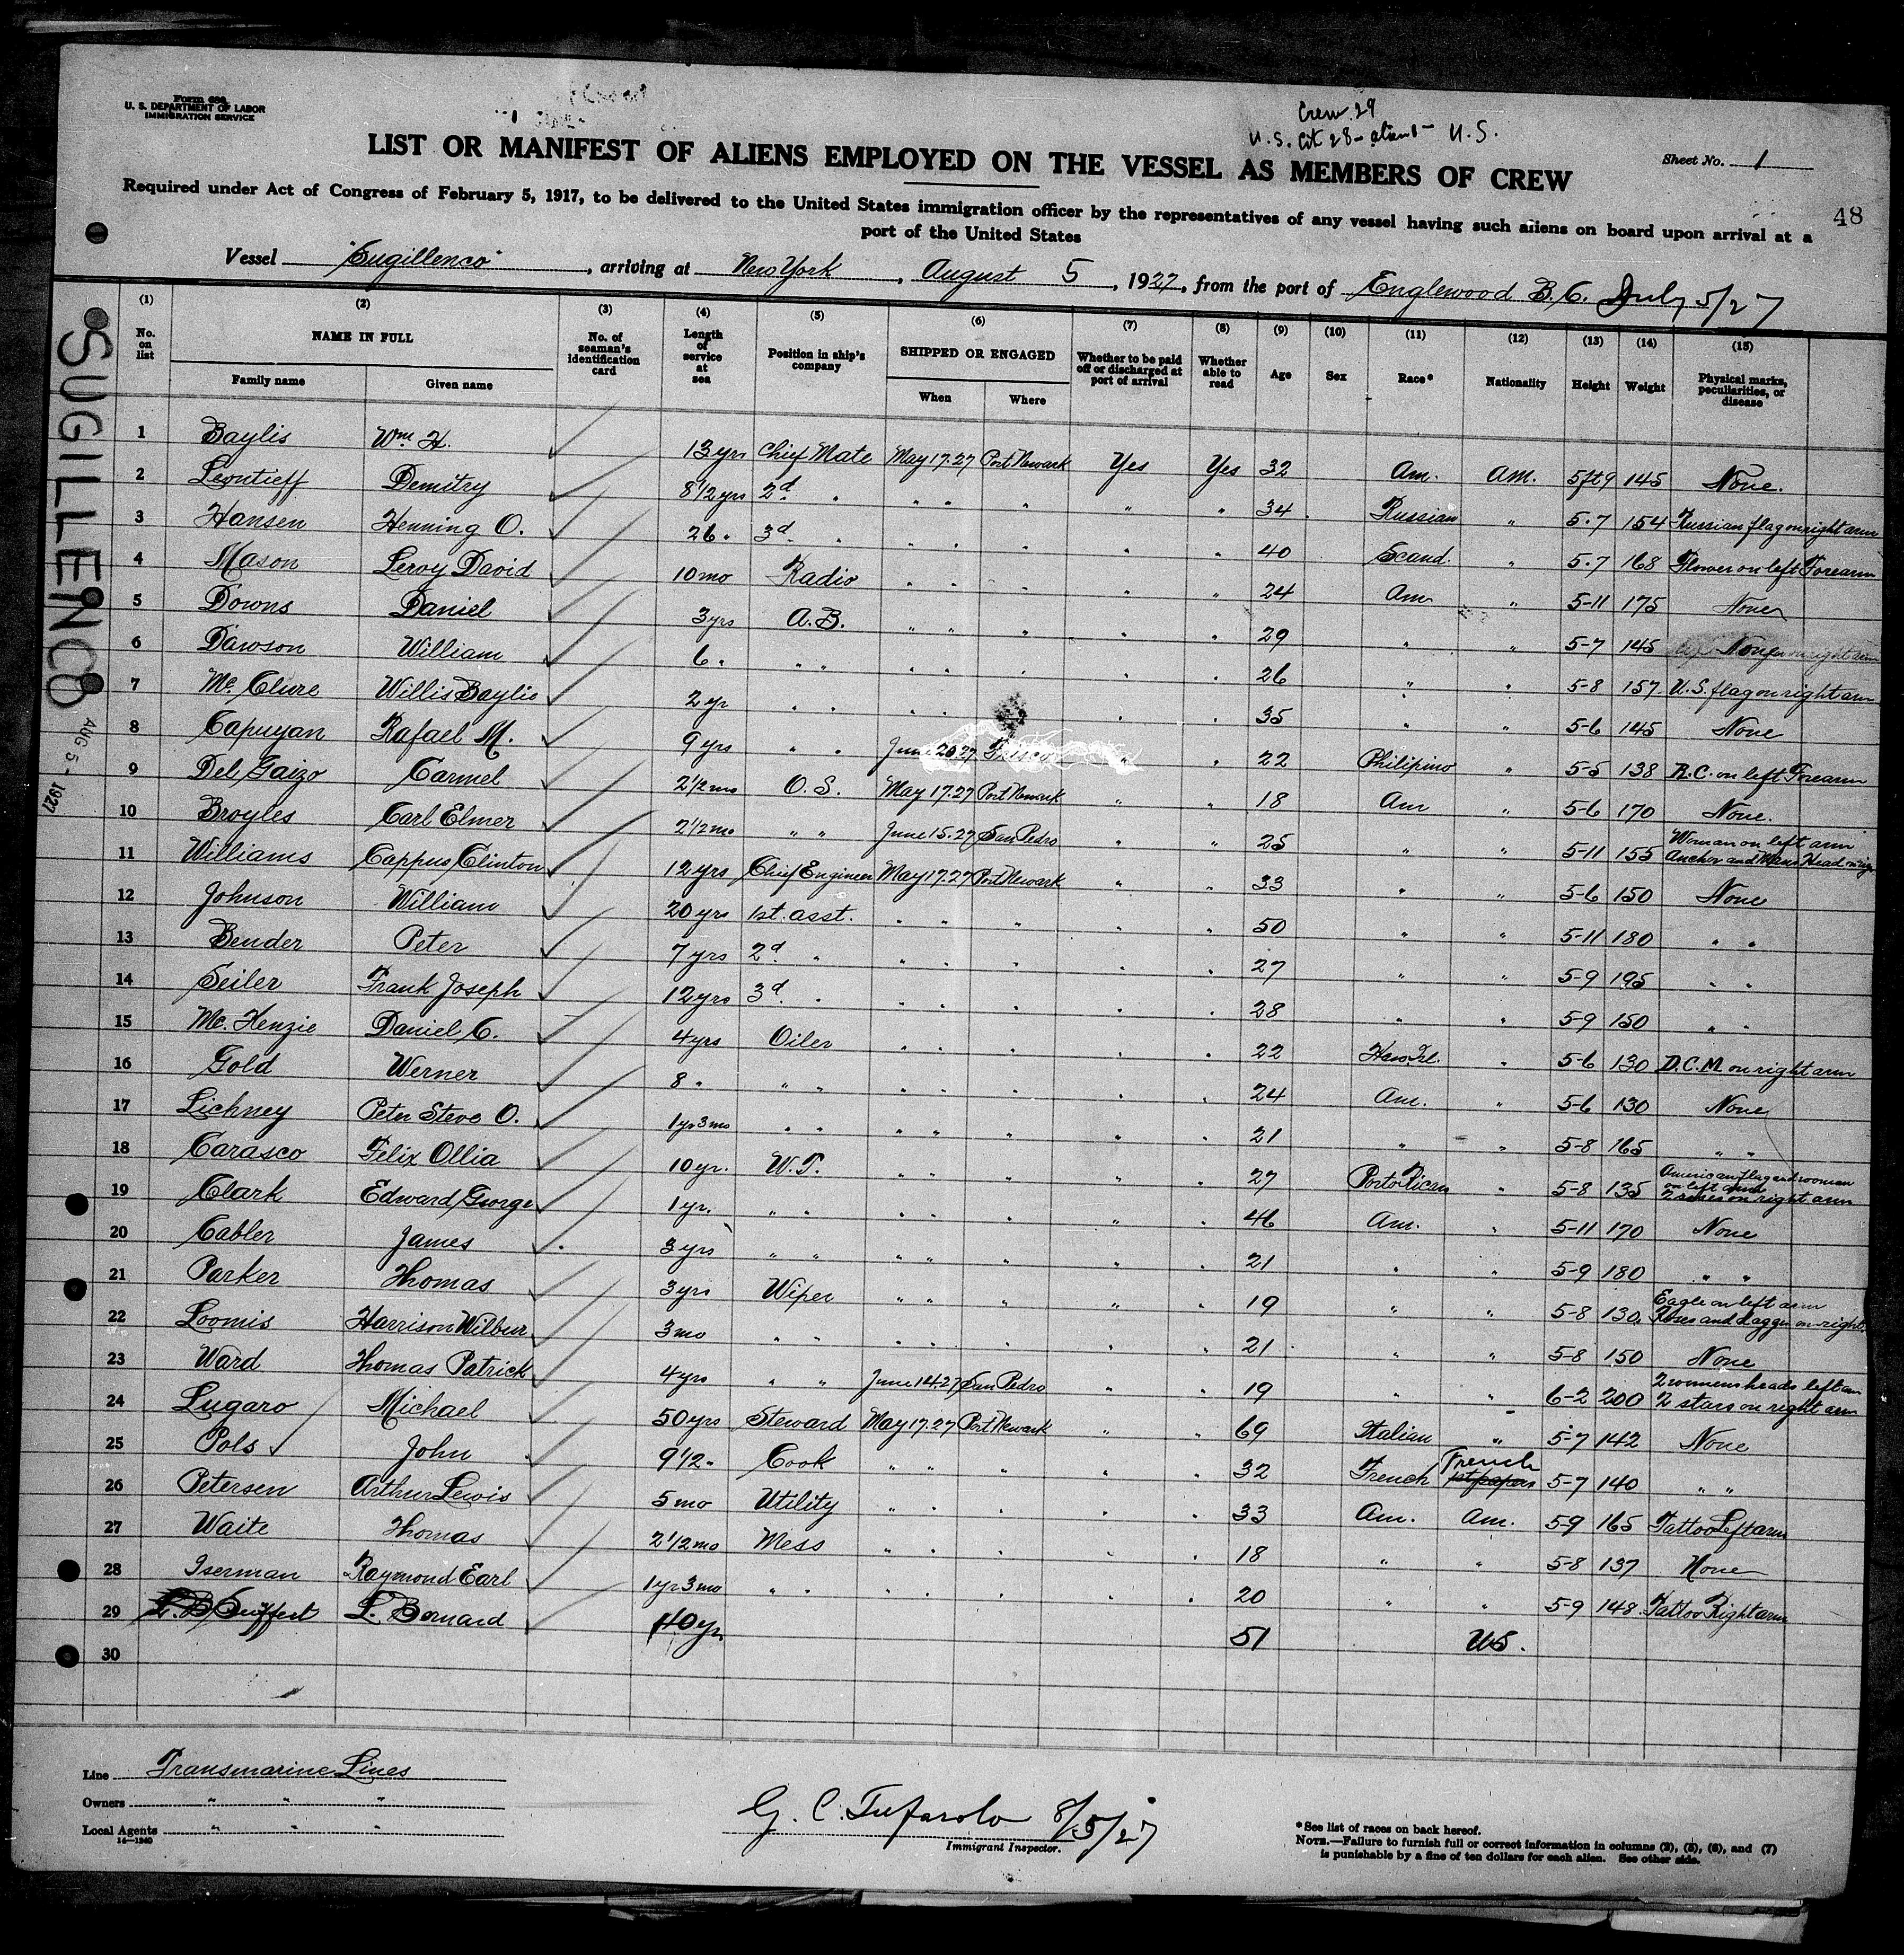 Form 680
U. S. DEPARTMENT OF LABOR
IMMIGRATION SERVICE
Crew 29
U.S. Cit 28 - alien 1 - U.S.
LIST OR MANIFEST OF ALIENS EMPLOYED ON THE VESSEL AS MEMBERS OF CREW
Sheet No. 1
Required under Act of Congress of February 5, 1917, to be delivered to the United States immigration officer by the representatives of any vessel having such aliens on board upon arrival at a
port of the United States
48
Vessel "Sugillenco", arriving at New York, August 5, 1927, from the port of Englewood B.C. July 5/27
SUGILLENCO
AUG 5 - 1927
(1) (2) (3) (4) (5) (6) (7) (8) (9) (10) (11) (12) (13) (14) (15)
No. on list NAME IN FULL Family name Given name No. of seaman's identification card Length of service at sea Position in ship's company SHIPPED OR ENGAGED When Where Whether to be paid off or discharged at port of arrival Whether able to read Age Sex Race* Nationality Height Weight Physical marks, peculiarities, or disease
1 Baylis Wm H. 13 yrs Chief Mate May 17.27 Port Newark Yes Yes 32 Am. Am. 5ft9 145 None.
2 Leontieff Demitry 8 1/2 yrs 2d " " " " " " 34 Russian " 5-7 154 Russian flag on right arm
3 Hansen Henning O. 26 " 3d " " " " " " 40 Scand. " 5-7 168 Flower on left Forearm
4 Mason Leroy David 10 mo Radio " " " " " 24 Am " 5-11 175 None
5 Downs Daniel 3 yrs A.B. " " " " " 29 " " 5-7 145 None
6 Dawson William 6 " " " " " " " " 26 " " 5-8 157 U.S. flag on right arm
7 Mc Clure Willis Baylis 2 yr " " " " " " " 35 " " 5-6 145 None
8 Capuyan Rafael M. 9 yrs " " June 20 27 Frisco " " 22 Philipino " 5-5 138 R.C. on left Forearm
9 Del Gaizo Carmel 2 1/2 mo O.S. May 17.27 Port Newark " " 18 Am " 5-6 170 None.
10 Broyles Carl Elmer 2 1/2 mo " " June 15.27 San Pedro " " 25 " " 5-11 155 Woman on left arm Anchor and Mans Head on rig
11 Williams Cappus Clinton 12 yrs Chief Engineer May 17.27 Port Newark " " 33 " " 5-6 150 None
12 Johnson William 20 yrs 1st. asst. " " " " " 50 " " 5-11 180 " "
13 Bender Peter 7 yrs 2d " " " " " " 27 " " 5-9 195 " "
14 Seiler Frank Joseph 12 yrs 3d " " " " " " 28 " " 5-9 150 " "
15 Mc. Henzie Daniel C. 4 yrs Oiler " " " " " 22 " 5-6 130 D.C.M on right arm
16 Gold Werner 8 " " " " " " " " 24 Am. " 5-6 130 None
17 Lichney Peter Steve O. 1 yr 3 mo " " " " " " " 21 " " 5-8 165 " "
18 Carasco Felix Ollia 10 yr. W.T. " " " " " 27 Porto Rican " 5-8 135 American flag and woman on left arm 2 roses on right arm
19 Clark Edward George 1 yr. " " " " " " " 46 Am. " 5-11 170 None
20 Cabler James 3 yrs " " " " " " " 21 " " 5-9 180 " "
21 Parker Thomas 3 yrs Wiper " " " " " 19 " " 5-8 130 Eagle on left arm Roses and dagger on right
22 Loomis Harrison Wilbur 3 mo " " " " " " " 21 " " 5-8 150 None
23 Ward Thomas Patrick 4 yrs " " June 14.27 San Pedro " " 19 " " 6-2 200 2 womens heads left arm 2 stars on right arm
24 Lugaro Michael 50 yrs Steward May 17.27 Port Newark " " 69 Italian " 5-7 142 None
25 Pols John 9 1/2 " Cook " " " " " 32 French French 1st papers 5-7 140 " "
26 Petersen Arthur Lewis 5 mo Utility " " " " " 33 Am. Am. 5-9 165 Tattoo Left arm
27 Waite Thomas 2 1/2 mo Mess " " " " " 18 " " 5-8 137 None
28 Iserman Raymond Earl 1 yr 3 mo " " " " " " " 20 " " 5-9 148 Tattoo Right arm
29 L. B. Seiffert L. Bernard 40 yr 51 U.S.
30
Line Transmarine Lines
Owners " " "
Local Agents " " "
14—1940
G. C. Tufarolo 8/5/27
Immigrant Inspector.
* See list of races on back hereof.
NOTE.—Failure to furnish full or correct information in columns (2), (5), (6), and (7)
is punishable by a fine of ten dollars for each alien. See other side.